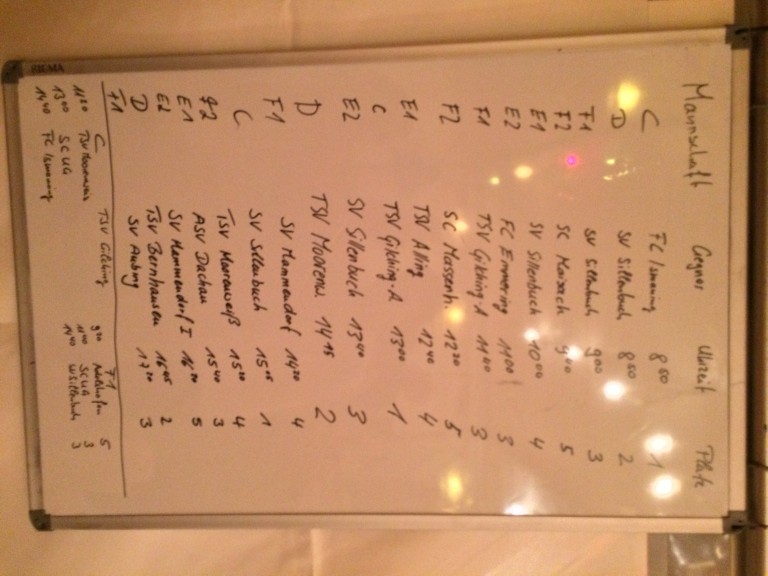 SIGMA
Mannschaft Gegner Uhrzeit Platz
C FC Ismaning 8 1
D SV Sillenbuch 8 2
F1 SV Sillenbuch 9⁰⁰ 3
F2 SC Maisach 9⁰⁰ 5
E1 SV Sillenbuch 10⁰⁰ 4
E2 FC Emmering 11⁰⁰ 3
F1 TSV Gilching A 11⁴⁰ 3
F2 SC Massenh. 12²⁰ 5
E1 TSV Alling 12⁴⁰ 4
C TSV Gilching-A 13⁰⁰ 1
E2 SV Sillenbuch 13⁴⁰ 3
D TSV Moorenw 14¹⁵ 2
F1 SV Mammendorf 14²⁰ 4
C SV Sillenbuch 15⁰⁵ 1
F2 TSV Moorenweiß 15²⁰ 4
E1 ASV Dachau 15⁴⁰ 3
E2 SV Mammendorf I 16²⁰ 5
D TSV Bernhausen 16⁰⁵ 2
F1 SV Aubing 17²⁰ 3
C TSV Gilching F1
11²⁰ TSV 5
13⁰⁰ SCUG SCUG 3
14⁴⁰ FC Ismaning 14⁴⁰ SV Sillenbuch 3